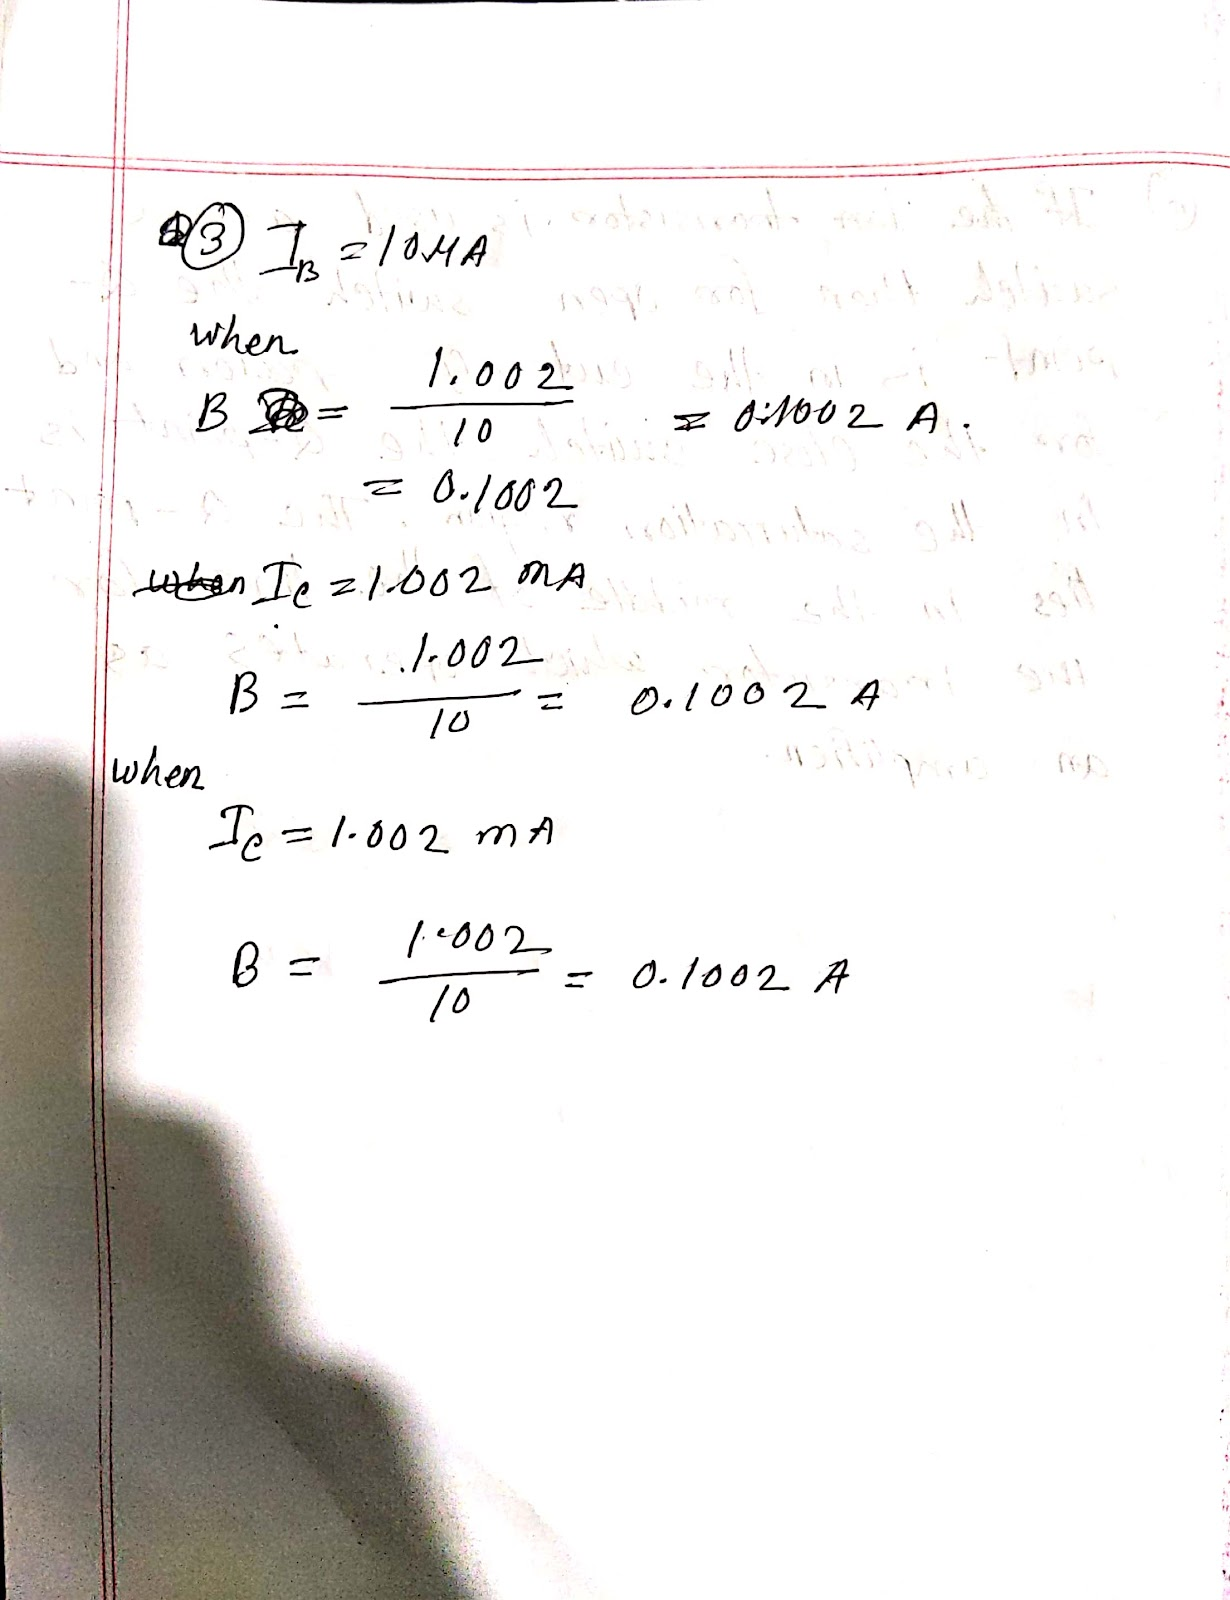 ③ I_B = 10 μA
when
B = 1.002 / 10 = 0.1002 A.
= 0.1002
when I_c = 1.002 mA
B = 1.002 / 10 = 0.1002 A
when
I_c = 1.002 mA
B = 1.002 / 10 = 0.1002 A